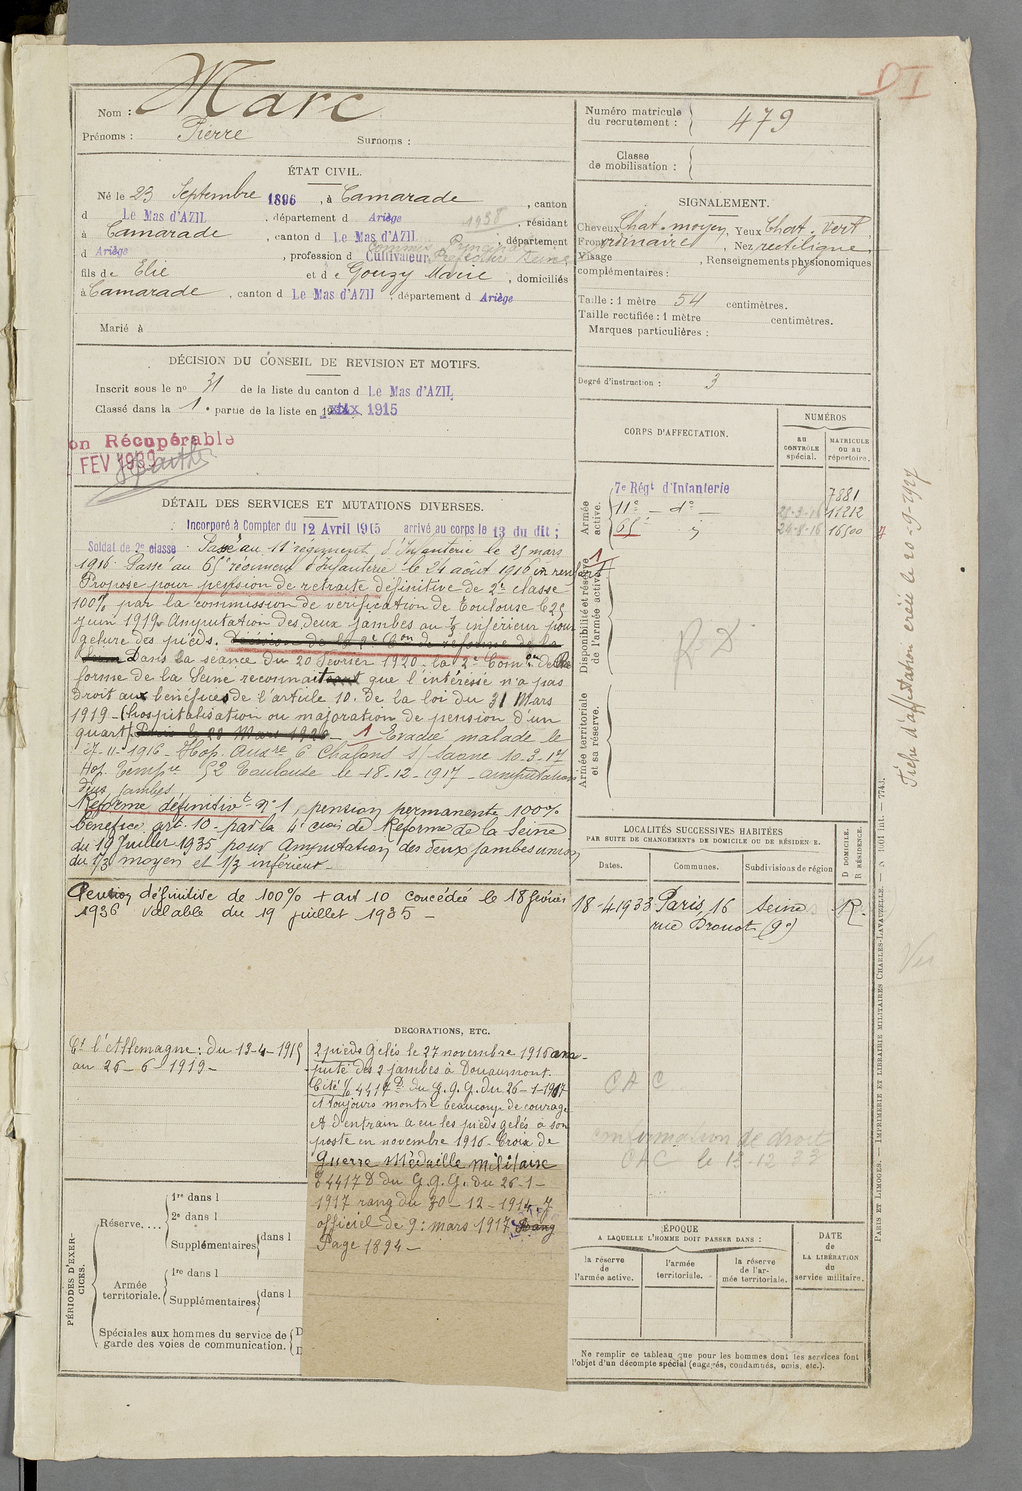 D I
Nom : Marc
Prénoms : Pierre Surnoms :
Numéro matricule
du recrutement : 479
Classe
de mobilisation :
ÉTAT CIVIL.
Né le 23 Septembre 1896, à Camarade, canton
d Le Mas d'AZIL, département d Ariège 1938, résidant
à Camarade, canton d Le Mas d'AZIL, département
d Ariège, profession d Cultivateur, Commis Principal Préfecture Seine
fils de Elie et de Gouzy Marie, domiciliés
à Camarade, canton d Le Mas d'AZIL, département d Ariège
Marié à
SIGNALEMENT.
Cheveux Chat. moyen, Yeux Chat. vert
Front ordinaire, Nez rectiligne
Visage , Renseignements physionomiques
complémentaires :
Taille : 1 mètre 54 centimètres.
Taille rectifiée : 1 mètre centimètres.
Marques particulières :
Degré d'instruction : 3
DÉCISION DU CONSEIL DE REVISION ET MOTIFS.
Inscrit sous le no 31 de la liste du canton d Le Mas d'AZIL
Classé dans la 1e partie de la liste en 1915
on Récupérable
FEV 1939
DÉTAIL DES SERVICES ET MUTATIONS DIVERSES.
Incorporé à Compter du 12 Avril 1915 arrivé au corps le 13 du dit ;
Soldat de 2e classe Passé au 11e régiment d'Infanterie le 25 mars
1916. Passé au 65e régiment d'Infanterie le 24 août 1916 en renfort
Proposé pour pension de retraite définitive de 2e classe
100% par la commission de vérification de Toulouse le 25
juin 1919. Amputation des deux jambes au ⅓ inférieur pour
gelure des pieds. Décision de la 2e Con de réforme de la
Seine Dans la séance du 20 février 1920. la 2e Comon de Ré
forme de la Seine reconnait que l'intéressé n'a pas
droit aux bénéfices de l'article 10. de la loi du 31 Mars
1919 - (hospitalisation ou majoration de pension d'un
quart). 1 Evadué malade le
27-11-1916 - Hop. Auxre 6 Chalons s/ Saone 10-3-17
Hop. Tempre 52 Toulouse le 18-12-1917 - amputations
deux jambes
Réforme définitive no 1, pension permanente 100%
bénéfice art. 10 - par la 4e Con de Réforme de la Seine
du 19 Juillet 1935 pour Amputation des deux jambes union
du 1/3 moyen et 1/3 inférieur -
Pension définitive de 100% + art 10 concédée le 18 février
1936 valable du 19 juillet 1935 -
CORPS D'AFFECTATION.
NUMÉROS
au
CONTRÔLE
spécial.
MATRICULE
ou au
répertoire.
Armée
active.
7e Régt d'Infanterie 7881
11e - do - 25-3-16 11212
65e 24-8-16 16500
1
Disponibilité et réserve
de l'armée active.
R D
Armée territoriale
et sa réserve.
LOCALITÉS SUCCESSIVES HABITÉES
PAR SUITE DE CHANGEMENTS DE DOMICILE OU DE RÉSIDENCE.
D DOMICILE.
R RÉSIDENCE.
Dates. Communes. Subdivisions de région
18-4 1933 Paris, 16 Seine R.
rue Drouot (9e)
Ct l'Allemagne : du 13-4-1915
au 26-6-1919 -
DECORATIONS, ETC.
2 pieds Gelés le 27 novembre 1916 am-
puté des 2 jambes à Douaumont.
Cité O/ 4417 D du G.Q.G. du 26-1-1917
a toujours montré beaucoup de courage
et d'entrain a eu les pieds gelés à son
poste en novembre 1916. Croix de
Guerre Médaille militaire
O/ 4417 D du G.Q.G. du 26-1-
1917 rang du 30-12-1914. J
officiel de 9 : mars 1917
Page 1894 -
C A C
confirmation de droit
CAC le 13-12-33
PÉRIODES D'EXER-
CICES.
Réserve....
1re dans l
2e dans l
Supplémentaires dans l
Armée
territoriale.
1re dans l
Supplémentaires dans l
Spéciales aux hommes du service de
garde des voies de communication.
ÉPOQUE
A LAQUELLE L'HOMME DOIT PASSER DANS :
la réserve
de
l'armée active.
l'armée
territoriale.
la réserve
de l'ar-
mée territoriale.
DATE
de
LA LIBÉRATION
du
service militaire.
Ne remplir ce tableau que pour les hommes dont les services font
l'objet d'un décompte spécial (engagés, condamnés, omis, etc.).
Fiche d'affectation créée le 20-9-1927
Vu
PARIS ET LIMOGES. — IMPRIMERIE ET LIBRAIRIE MILITAIRES CHARLES-LAVAUZELLE.